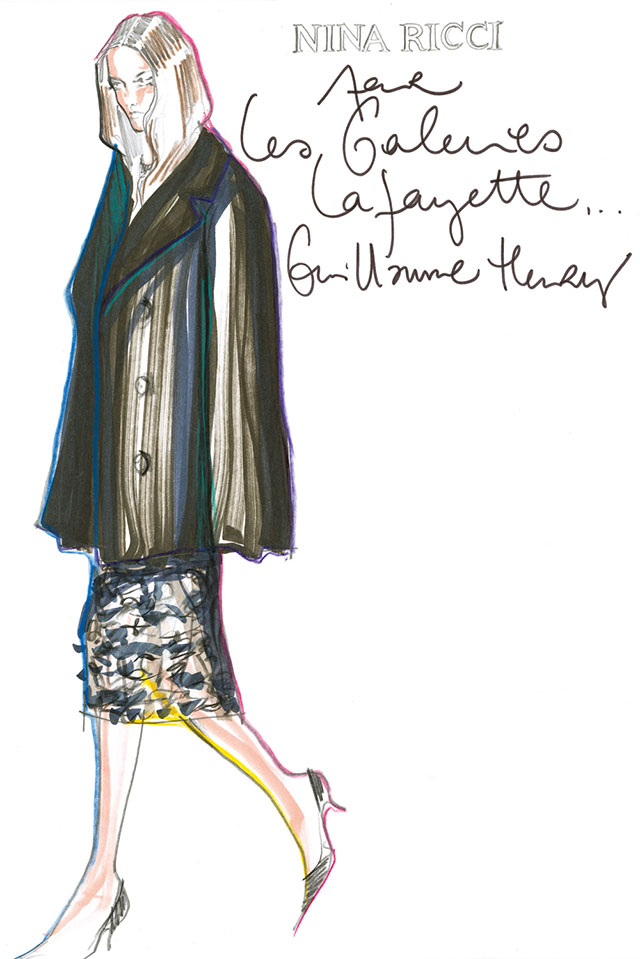 NINA RICCI
pour
Les Galeries
Lafayette...
Guillaume Henry